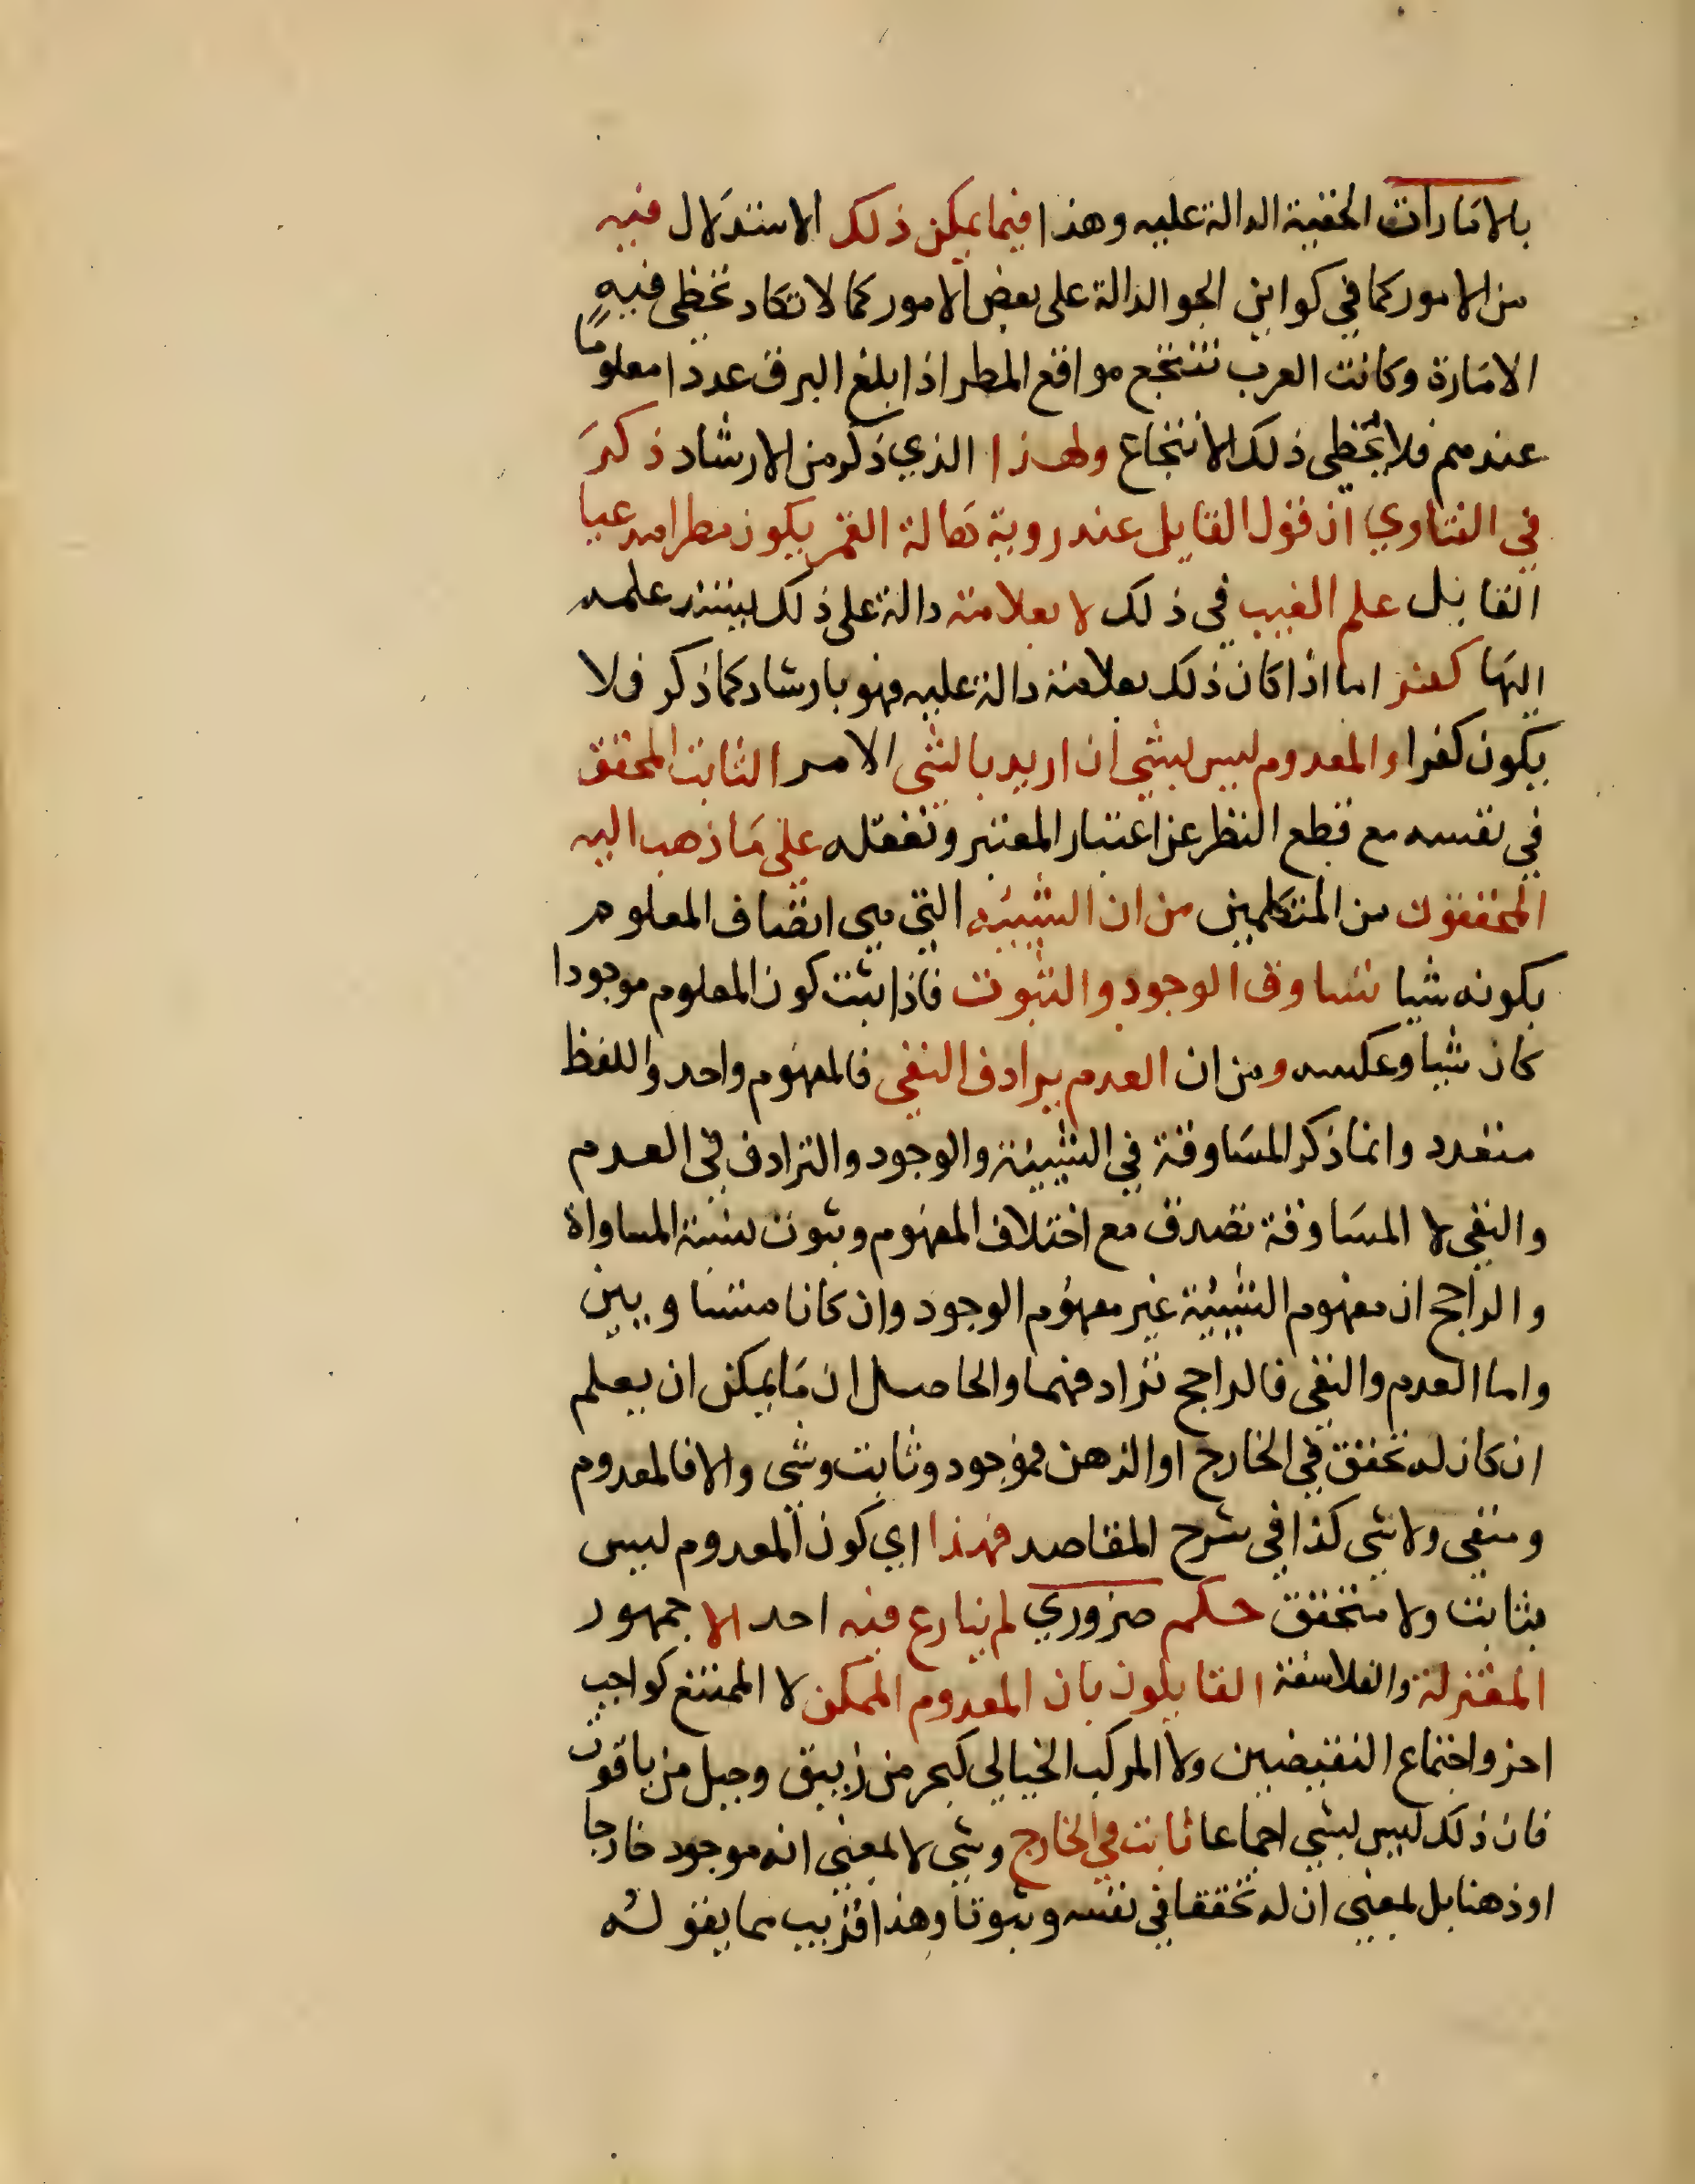 بالامارات الخفية الدالة عليه وهذا فيما يمكن ذلك الاستدلال فيه
من الامور كما في كواين الجو الدالة على بعض الامور كما لا تكاد تخطي فيه
الامارة وكانت العرب تنتجع مواقع المطر اذا بلغ البرق عددا معلوما
عندهم فلا يخطي ذلك الانتجاع ولهذا الذي ذكر من الارشاد ذكر
في الفتاوي ان قول القايل عند روية هالة القمر يكون مطرا مدعيا
القايل علم الغيب في ذلك لا بعلامته دالة على ذلك يستند علمه
اليها كفر اما اذا كان ذلك بعلامة دالة عليه فهو بارشاد كما ذكر فلا
يكون كفرا والمعدوم ليس بشي ان اريد بالشي الامر الثابت المحقق
في نفسه مع قطع النظر عن اعتبار المعتبر وتعقله على ما ذهب اليه
المحققون من المتكلمين من ان الشيئية التي هي اتصاف المعلوم
بكونه شيا تساوق الوجود والثبوت فاذا ثبت كون المعلوم موجودا
كان شيا وعكسه ومن ان العدم يرادف النفي فالمفهوم واحد واللفظ
متعدد وانما ذكر المساوقة في الشيئية والوجود والترادف في العدم
والنفي لا المساوقة تصدق مع اختلاف المفهوم وثبوت نسبة المساواة
والراجح ان مفهوم الشيئية غير مفهوم الوجود وان كانا متساويين
واما العدم والنفي فالراجح ترادفهما والحاصل ان ما يمكن ان يعلم
ان كان له تحقق في الخارج او الذهن فموجود وثابت وشي والا فالمعدوم
ومنفي ولا شي كذا في شرح المقاصد فهذا اي كون المعدوم ليس
بثابت ولا متحقق حكم ضروري لم ينازع فيه احد الا جمهور
المعتزلة والفلاسفة القايلون بان المعدوم الممكن لا الممتنع كواجب
اخر واجتماع النقيضين ولا المركب الخيالي كبحر من زيبق وجبل من ياقوت
فان ذلك ليس بشي اجماعا ثابت في الخارج وشي لا بمعني انه موجود خارجا
او ذهنا بل بمعني ان له تحققا في نفسه وثبوتا وهذا قريب مما يقوله